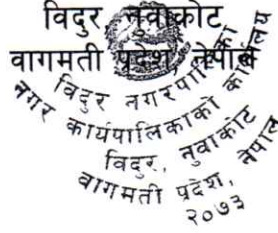 विदुर, नुवाकोट
वागमती प्रदेश, नेपाल
विदुर नगरपालिका
नगर कार्यपालिकाको कार्यालय
विदुर, नुवाकोट
बागमती प्रदेश, नेपाल
२०७३